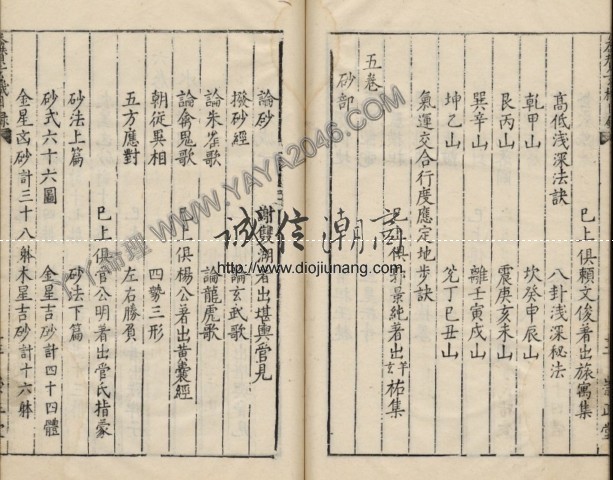 巳上俱賴文俊著出旅寓集
高低淺深法訣
八卦淺深秘法
乾甲山
坎癸申辰山
艮丙山
震庚亥未山
巽辛山
離壬寅戌山
坤乙山
兌丁巳丑山
氣運交合行度應定地步訣
景純著出玄羊祐集
五卷
砂部
論砂
謝雙湖著出堪輿管見
撥砂經
論玄武歌
論朱雀歌
論龍虎歌
論禽鬼歌
巳上俱楊公著出黃囊經
朝從異相
四勢三形
五方應對
左右勝負
巳上俱管公明著出管氏指蒙
砂法上篇
砂法下篇
砂式六十六圖
金星吉砂計四十四體
金星凶砂計三十八躰
木星吉砂計十六躰
誠信潮間
http://www.diojiunang.com/
YAYA命理 WWW.YAYA2046.COM